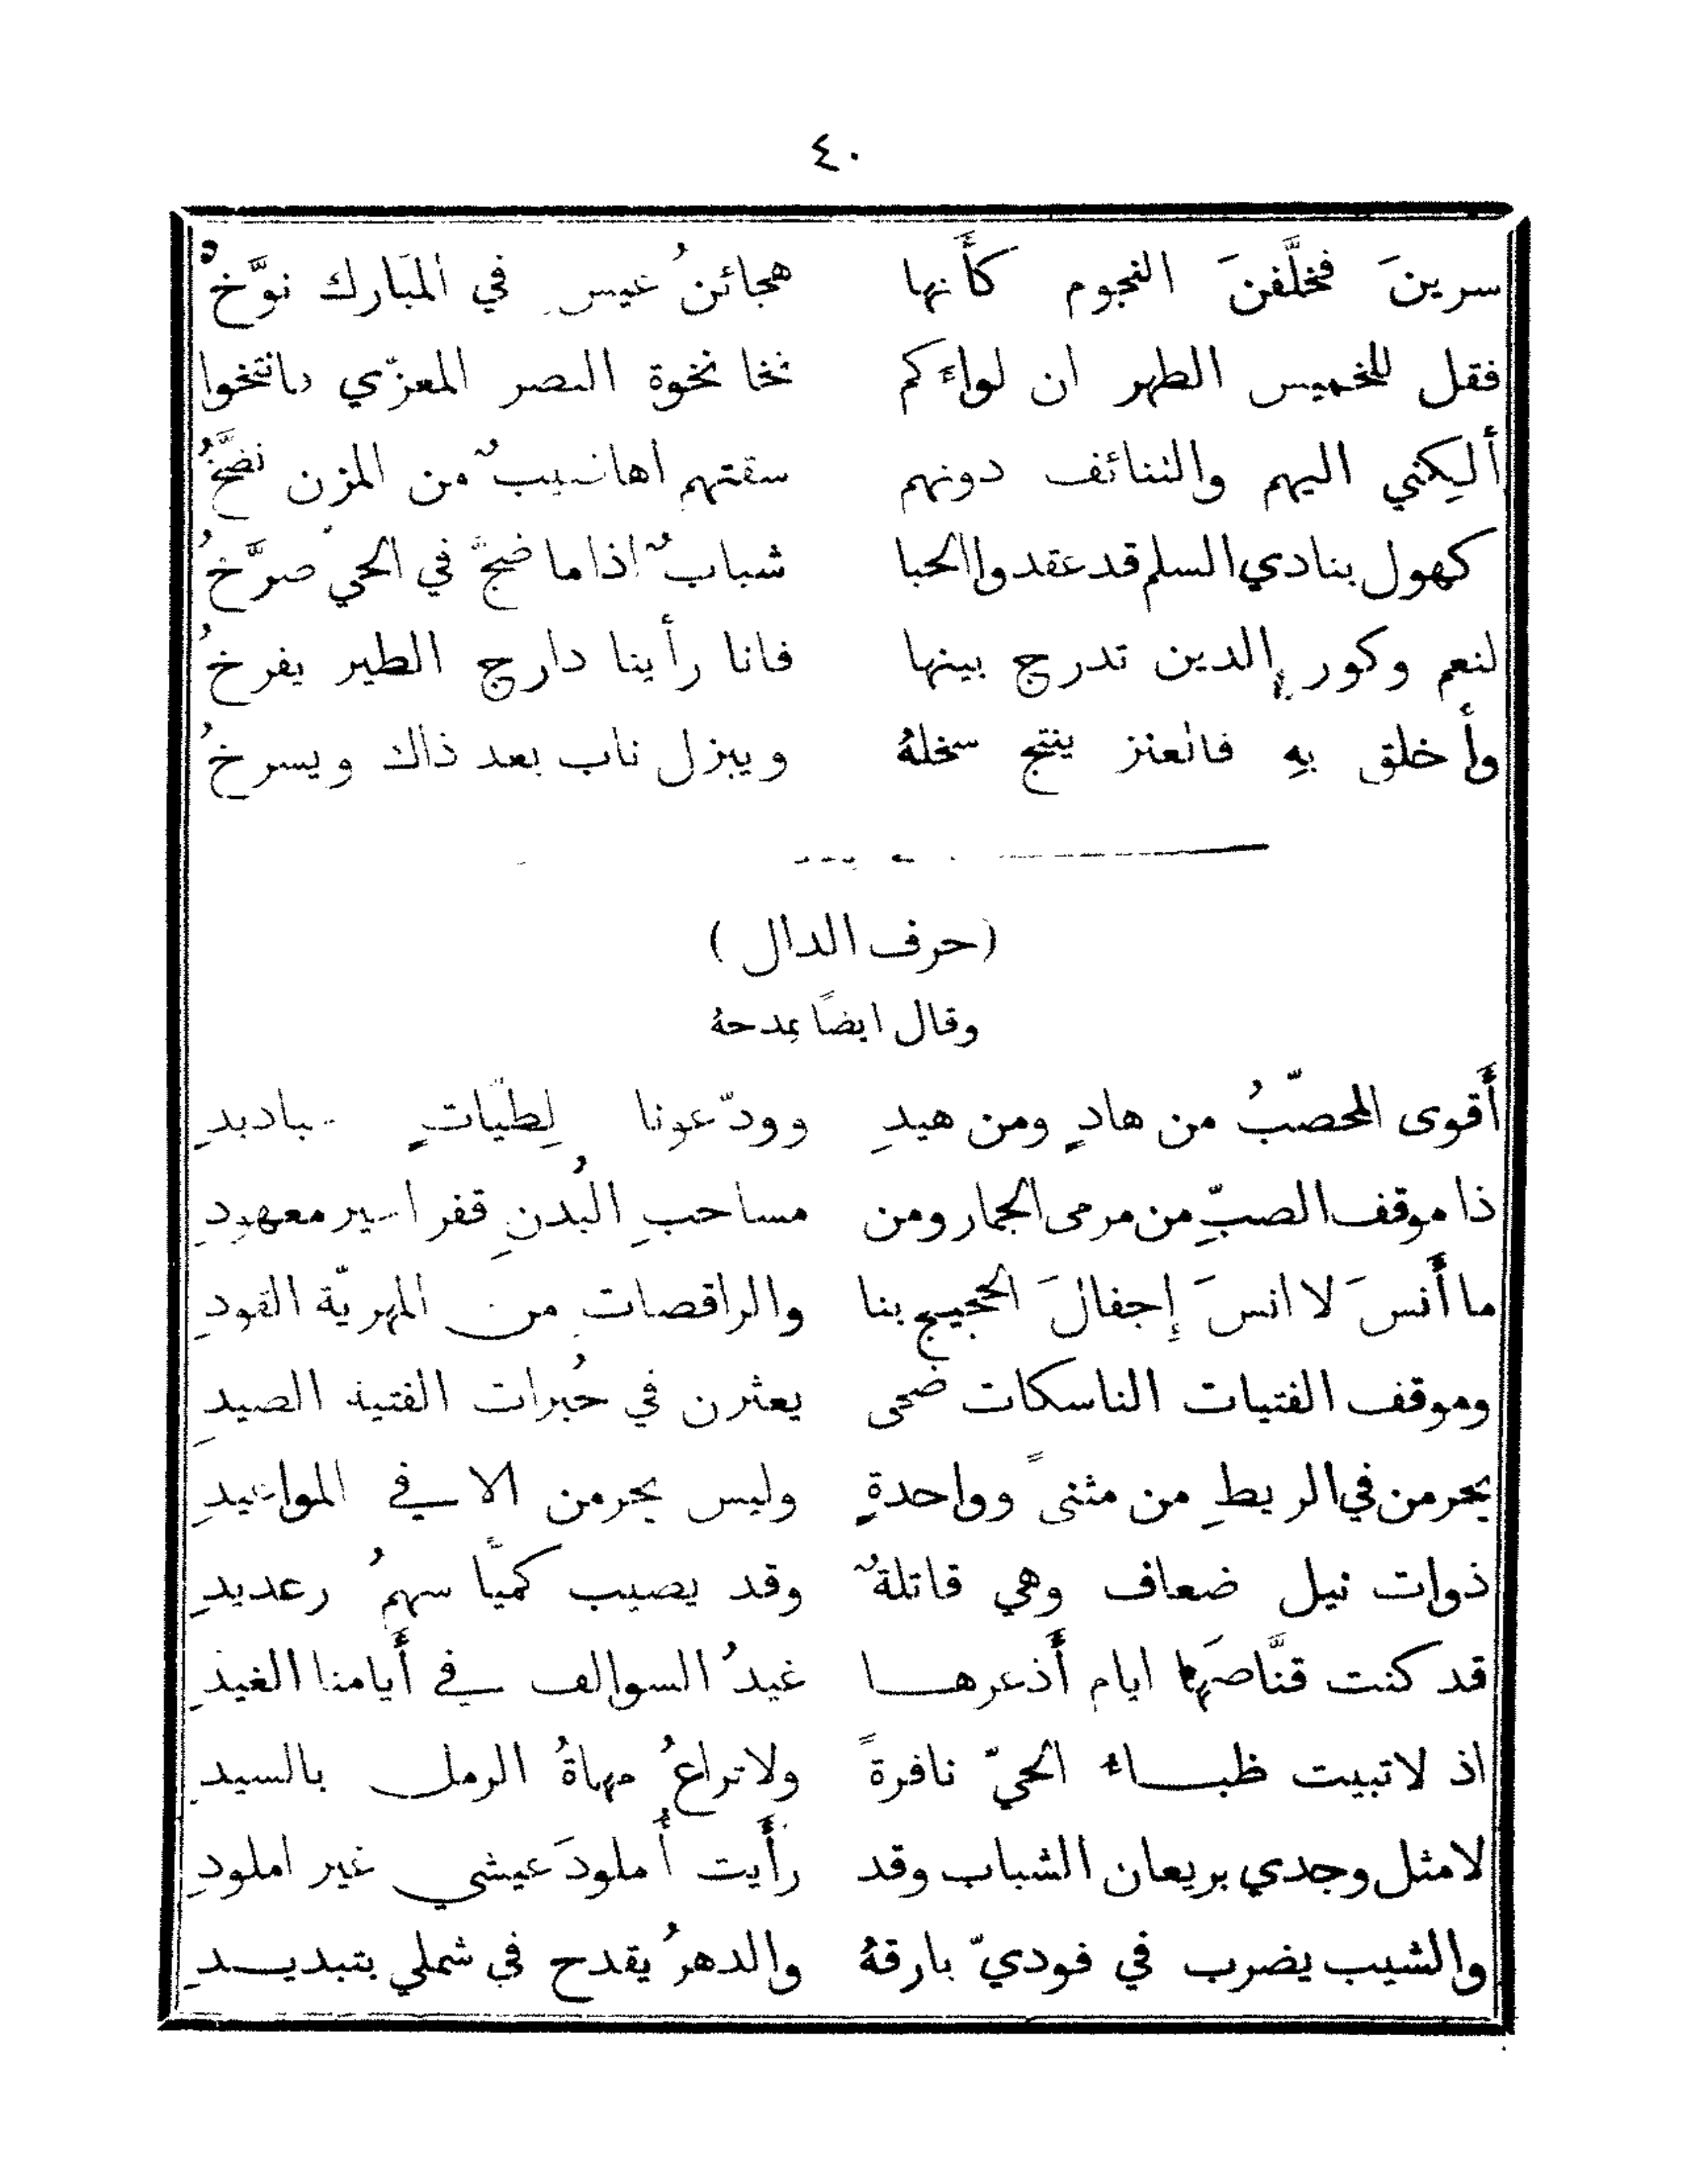 ٤٠
سرينَ فخلَّفنَ النجوم كأَنها هجائنُ عيس في المَبارك نوَّخُ
فقل للخميس الطهر ان لواءكم نخا نخوة النصر المعزّي فانتخوا
أَلِكني اليهم والتنائف دونهم سقتهم اهاضيبٌ من المزن نضَّخُ
كهول بنادي السلم قد عقدوا الحبا شبابٌ اذا ما ضجَّ في الحي صرَّخُ
لنعم وكور الدين تدرج بينها فانا رأينا دارج الطير يفرخُ
وأَخلق بهِ فالعنز ينتج سخلهُ ويبزل ناب بعد ذاك ويسرخُ
(حرف الدال)
وقال ايضاً يمدحهُ
أَقوى المحصّبُ من هادٍ ومن هيدِ وودّعونا لِطيّاتٍ عباديدِ
ذا موقف الصبِّ من مرمى الجمار ومن مساحبِ البُدنِ قفر اسير معهودِ
ما أَنسَ لا انسَ إِجفالَ الحجيج بنا والراقصات من المهريّة القودِ
وموقف الفتيات الناسكات ضحى يعثرن في حُبرات الفتية الصيدِ
يحرمن في الريطِ من مثنىً وواحدةٍ وليس يحرمن الا في المواعيدِ
ذوات نيل ضعاف وهي قاتلةٌ وقد يصيب كميًّا سهمُ رعديدِ
قد كنت قنَّاصَها ايام أَذعرها غيدُ السوالف في أَيامنا الغيدِ
اذ لا تبيت ظباء الحيّ نافرةً ولا تراعُ مهاةُ الرمل بالسيدِ
لا مثل وجدي بريعان الشباب وقد رأَيت أُملودَ عيشي غير املودِ
والشيب يضرب في فوديّ بارقهُ والدهرُ يقدح في شملي بتبديدِ